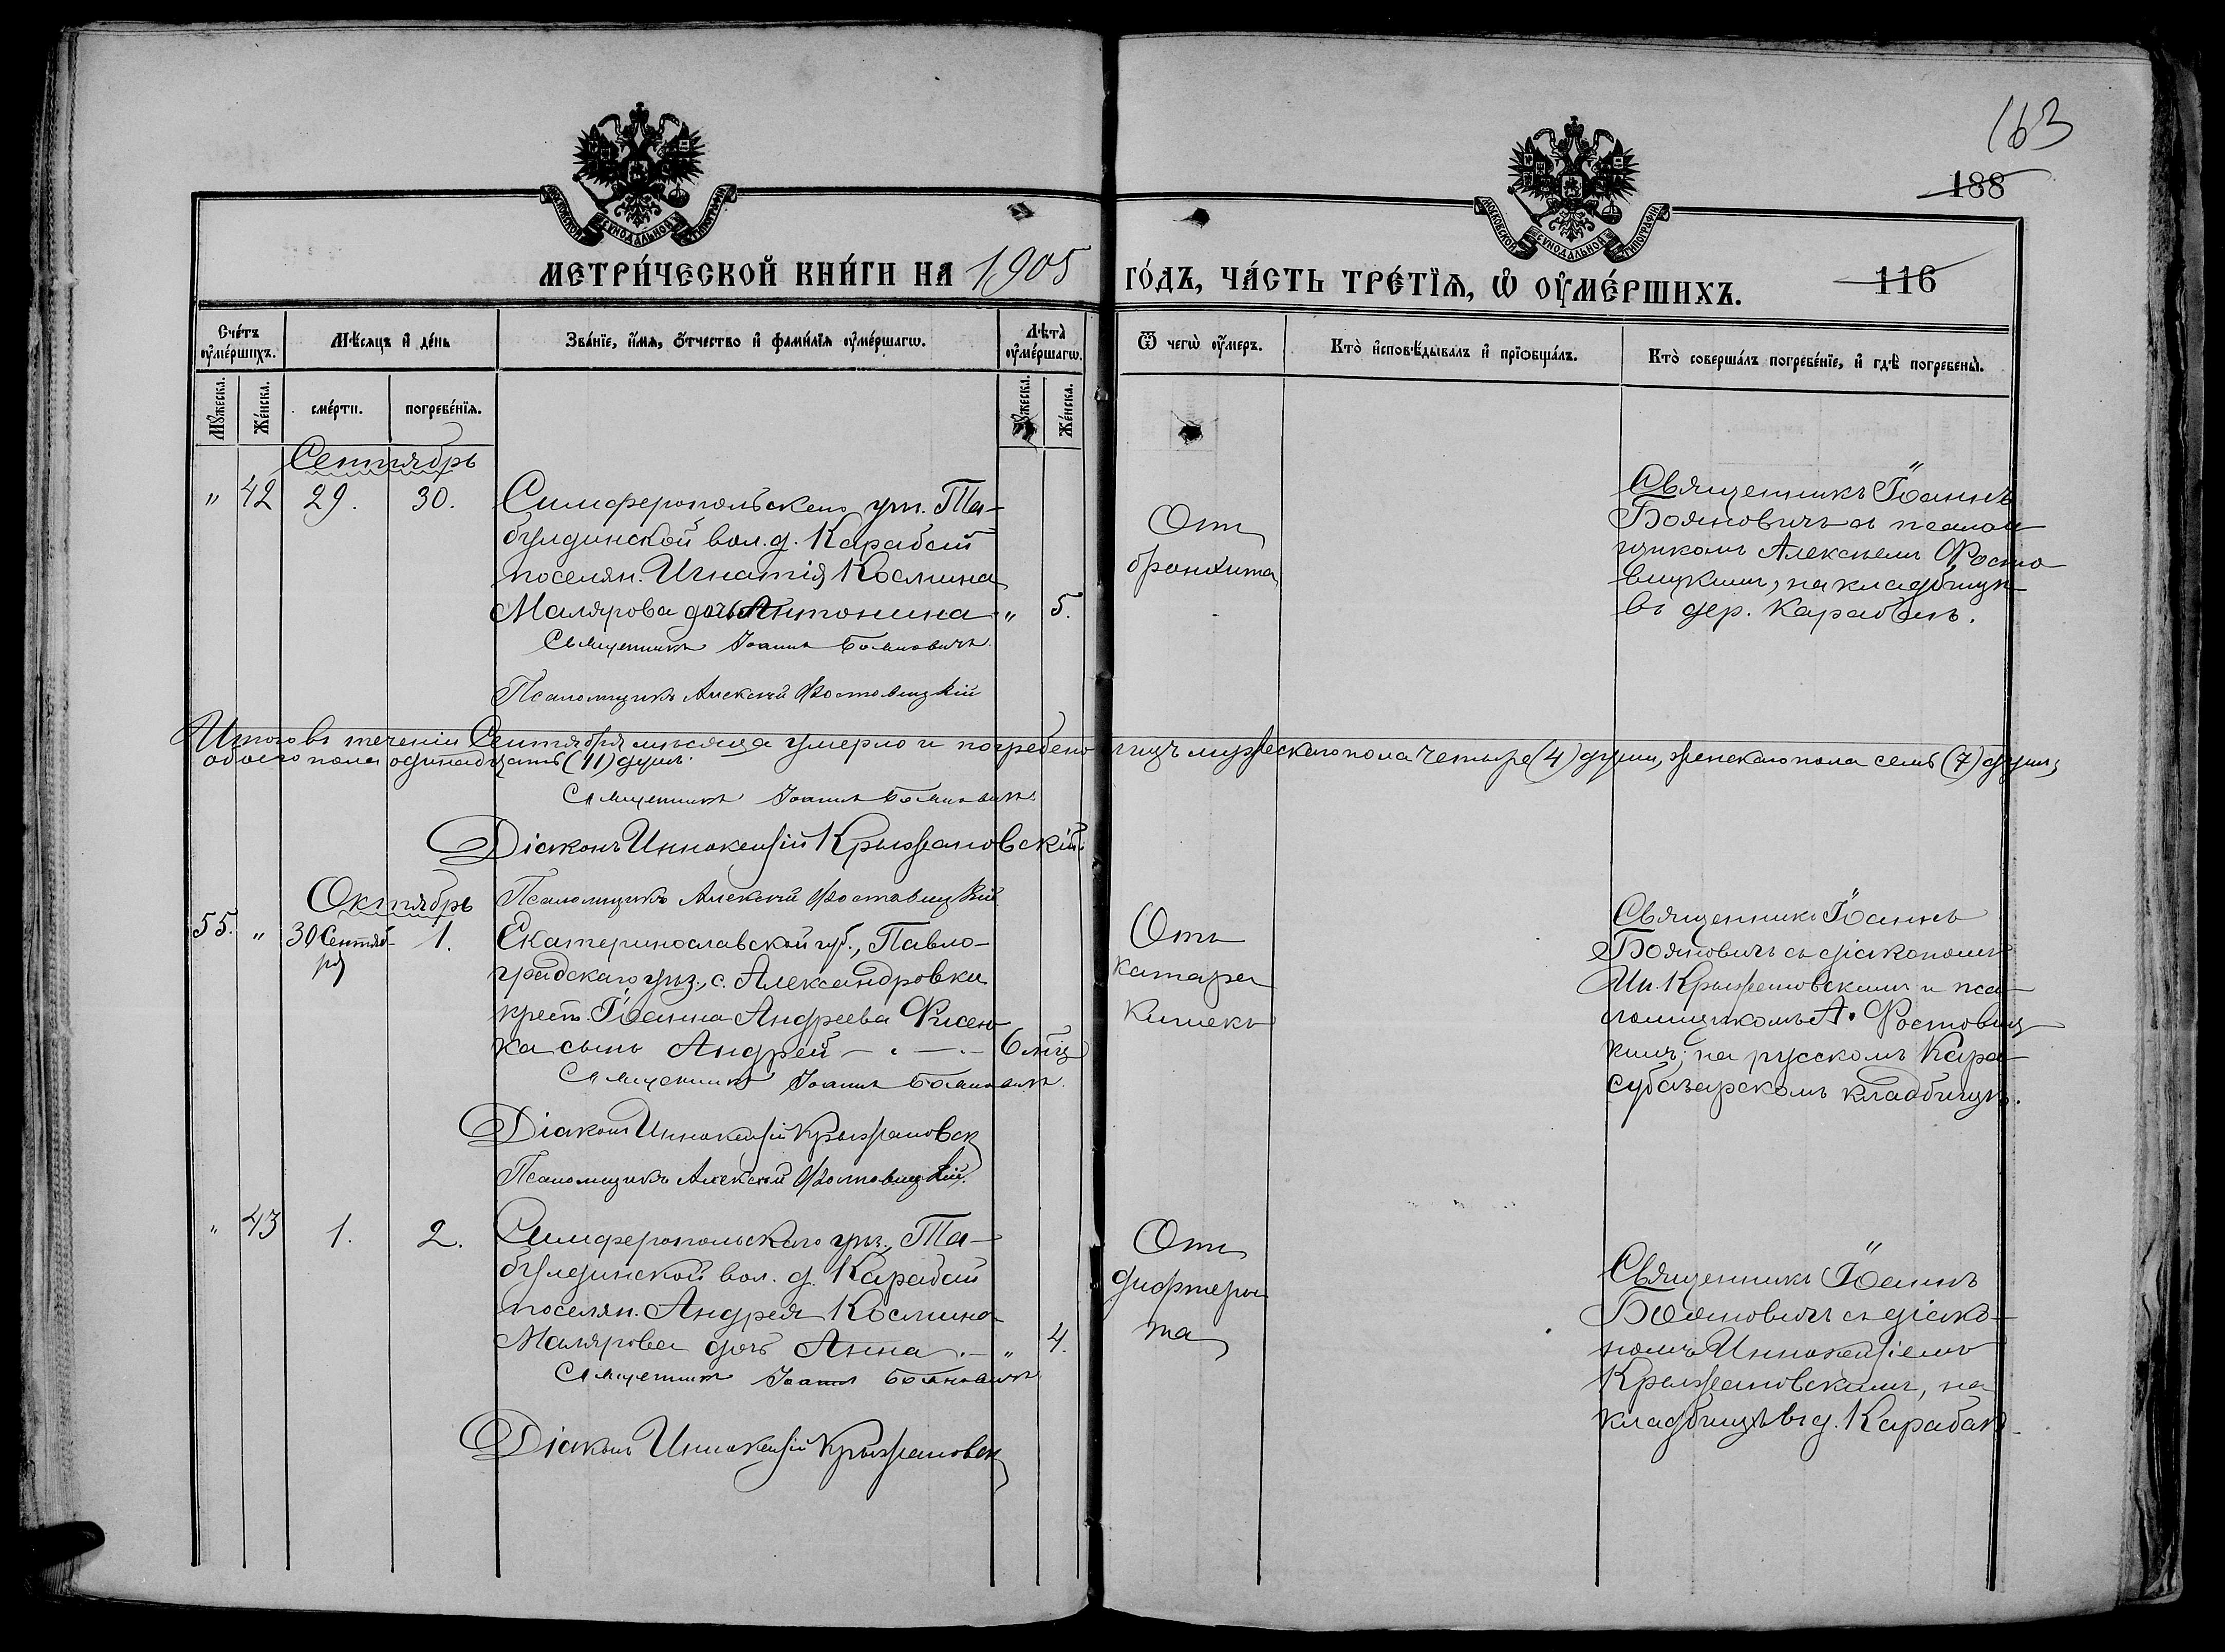 163
188
МОСКОВСКОЙ СѴНОДАЛЬНОЙ ТИПОГРАФІИ
МОСКОВСКОЙ СѴНОДАЛЬНОЙ ТИПОГРАФІИ
МЕТРИ́ЧЕСКОЙ КНИ́ГИ НА 1905
ГО́ДЪ, ЧА́СТЬ ТРЕ́ТЇѦ, Ѡ҆ ОУ҆МЕ́РШИХЪ.
116
Сче́тъ оу҆ме́ршихъ.
Мѣ́сѧцъ и҆ де́нь
Зва́нїе, и҆́мѧ, ѻ҆́тчество и҆ фами́лїѧ оу҆ме́ршагѡ.
Лѣта̀ оу҆ме́ршагѡ.
Ѿ чегѡ̀ оу҆́меръ.
Кто̀ и҆сповѣ́дывалъ и҆ прїѡбща́лъ.
Кто̀ соверша́лъ погребе́нїе, и҆ гдѣ̀ погребены̀.
Мꙋ́жеска.
Же́нска.
сме́рти.
погребе́нїѧ.
Мꙋ́жеска.
Же́нска.
Сентябрь
" 42 29. 30.
Симферопольскаго уѣз. Та-
булдинской вол. д. Карабай
поселян. Игнатія Космина
Малярова дочь Антонина " 5.
Священникъ Іоаннъ Бояновичъ.
Псаломщикъ Алексѣй Фостовицкій
Отъ
бронхита
Священникъ Іоаннъ
Бояновичъ съ псалом
щикомъ Алексѣемъ Фосто
вицкимъ, на кладбищѣ
въ дер. Карабаѣ.
Итого въ теченіи Сентября мѣсяца умерло и погребено лицъ мужескаго пола четыре (4) души, женскаго пола семь (7) душъ,
обоего пола одинадцать (11) душъ.
Священникъ Іоаннъ Бояновичъ.
Діаконъ Иннокентій Крыжановскій.
Псаломщикъ Алексѣй Фостовицкій
Октябрь
55. " 30 Сентяб-
ря
1.
Екатеринославской губ., Павло-
градскаго уѣз., с. Александровки
крест. Іоанна Андреева Фисен
ка сынъ Андрей 6 мѣц
Священникъ Іоаннъ Бояновичъ.
Діаконъ Иннокентій Крыжановск
Псаломщикъ Алексѣй Фостовицкій.
Отъ
катара
кишекъ
Священникъ Іоаннъ
Бояновичъ съ діакономъ
Ин. Крыжановскимъ и пса-
ломщикомъ А. Фостовиц
кимъ; на русскомъ Кара-
субазарскомъ кладбищѣ.
" 43 1. 2.
Симферопольскаго уѣз., Та-
булдинской вол. д. Карабай
поселян. Андрея Космина
Малярова дочь Анна " 4.
Священникъ Іоаннъ Бояновичъ
Діаконъ Иннокентій Крыжановск
Отъ
дифтери
та
Священникъ Іоаннъ
Бояновичъ съ діако-
номъ Иннокентіемъ
Крыжановскимъ, на
кладбищѣ въ д. Карабаѣ